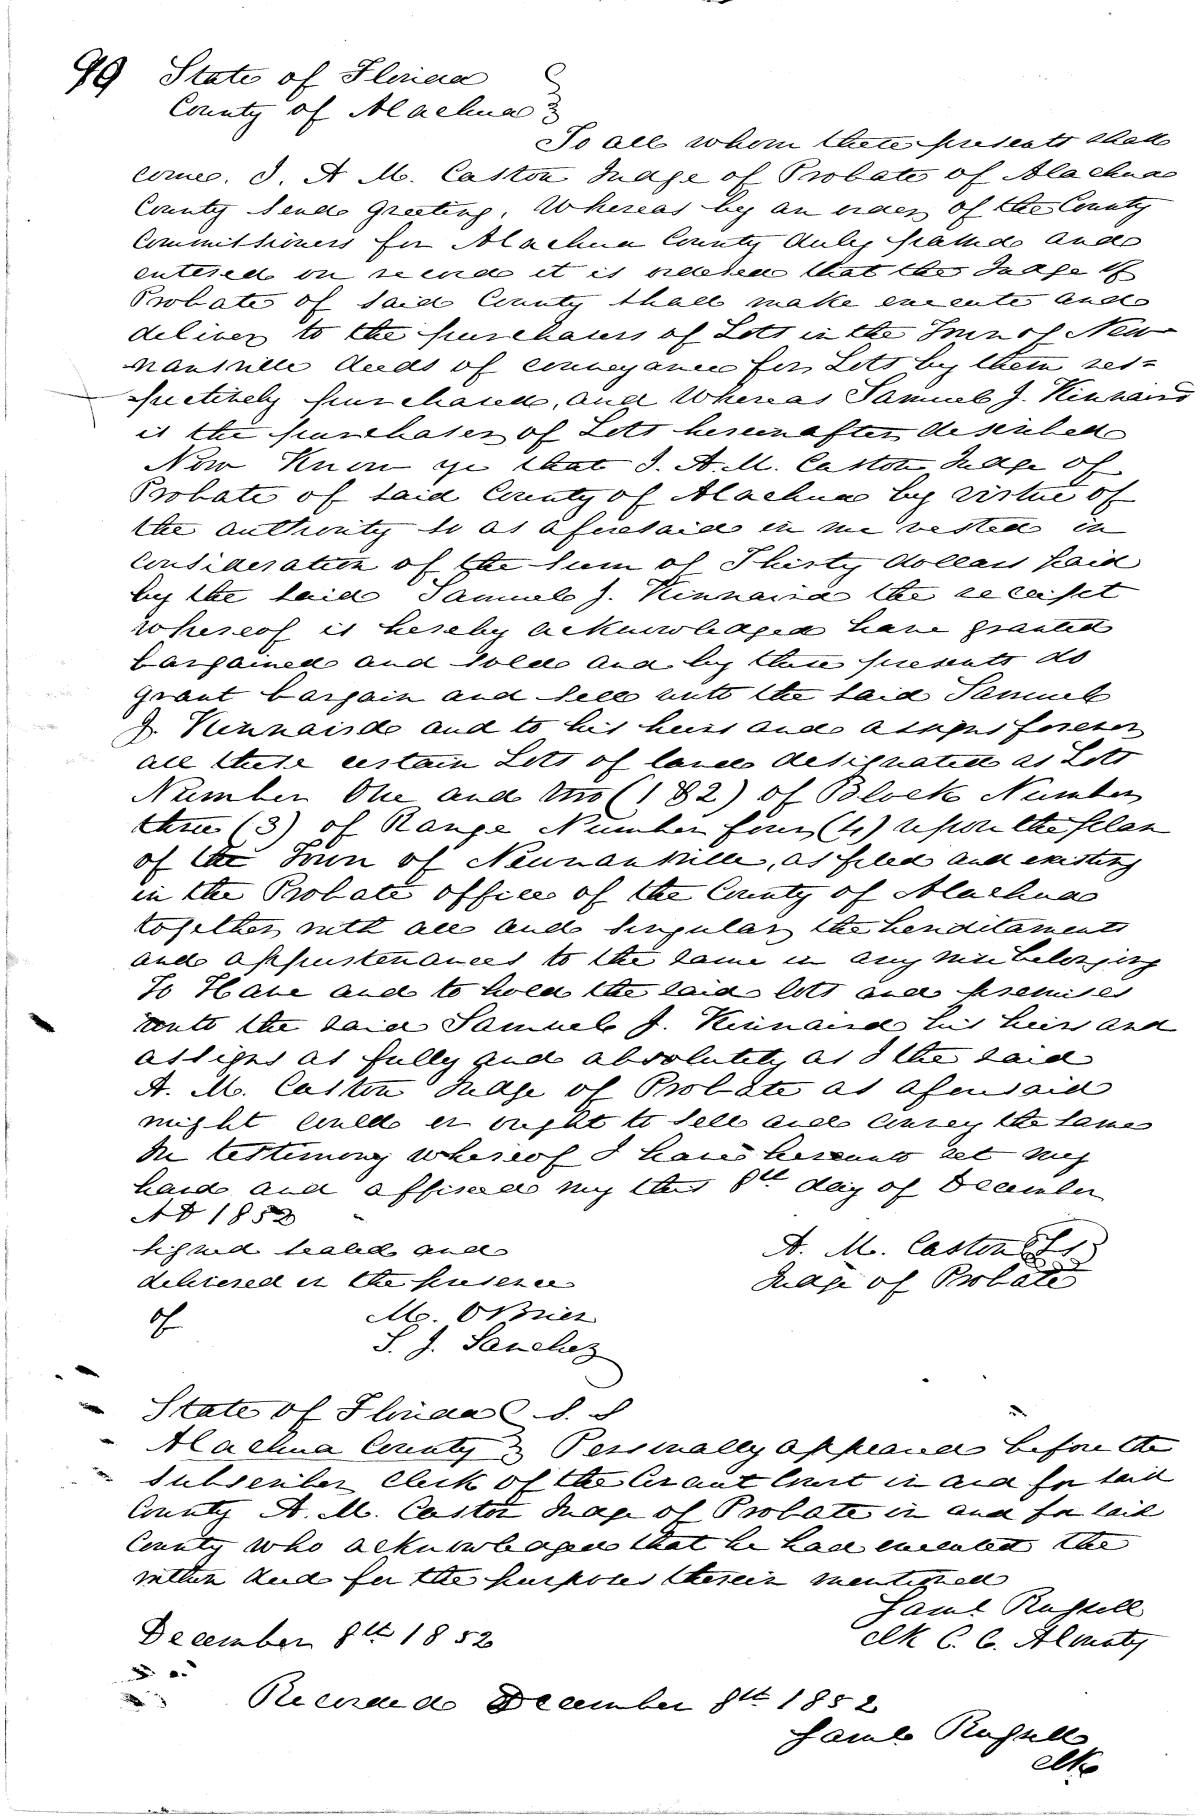 99 State of Florida
County of Alachua
To all whom these presents shall
come. I. A. M. Caston Judge of Probate of Alachua
County Send Greeting. Whereas by an order of the County
Commissioners for Alachua County duly passed and
entered on record it is ordered that the Judge of
Probate of said County shall make execute and
deliver to the purchasers of Lots in the Town of New
nansville deeds of conveyance for Lots by them res=
pectively purchased, and Whereas Samuel J. Kinnaird
is the purchaser of Lots hereinafter described
Now Know ye that I. A. M. Caston Judge of
Probate of said County of Alachua by virtue of
the authority so as aforesaid in me vested in
consideration of the sum of Thirty dollars paid
by the said Samuel J. Kinnaird the receipt
whereof is hereby acknowledged have granted
bargained and sold and by these presents do
grant bargain and sell unto the said Samuel
J. Kinnaird and to his heirs and assigns forever
all those certain Lots of land designated as Lots
Number One and two (1 & 2) of Block Number
three (3) of Range Number four (4) upon the plan
of the Town of Newnansville, as filed and existing
in the Probate office of the County of Alachua
together with all and singular the heriditaments
and appurtenances to the same in any wise belonging
To Have and to hold the said lots and premises
unto the said Samuel J. Kinnaird his heirs and
assigns as fully and absolutely as I the said
A. M. Caston Judge of Probate as aforesaid
might could or ought to sell and convey the same
In testimony whereof I have hereunto set my
hand and affixed my this 8th day of December
AD 1852
signed sealed and A. M. Caston LS
delivered in the presence Judge of Probate
of M. OBrien
S. J. Sanchez
State of Florida S. S
Alachua County Personally appeared before the
subscriber Clerk of the Circuit Court in and for said
County A. M. Caston Judge of Probate in and for said
County who acknowledged that he had executed the
within deed for the purposes therein mentioned
Saml Russell
December 8th 1852 Clk C. C. A County
Recorded December 8th 1852
Saml Russell
Clk